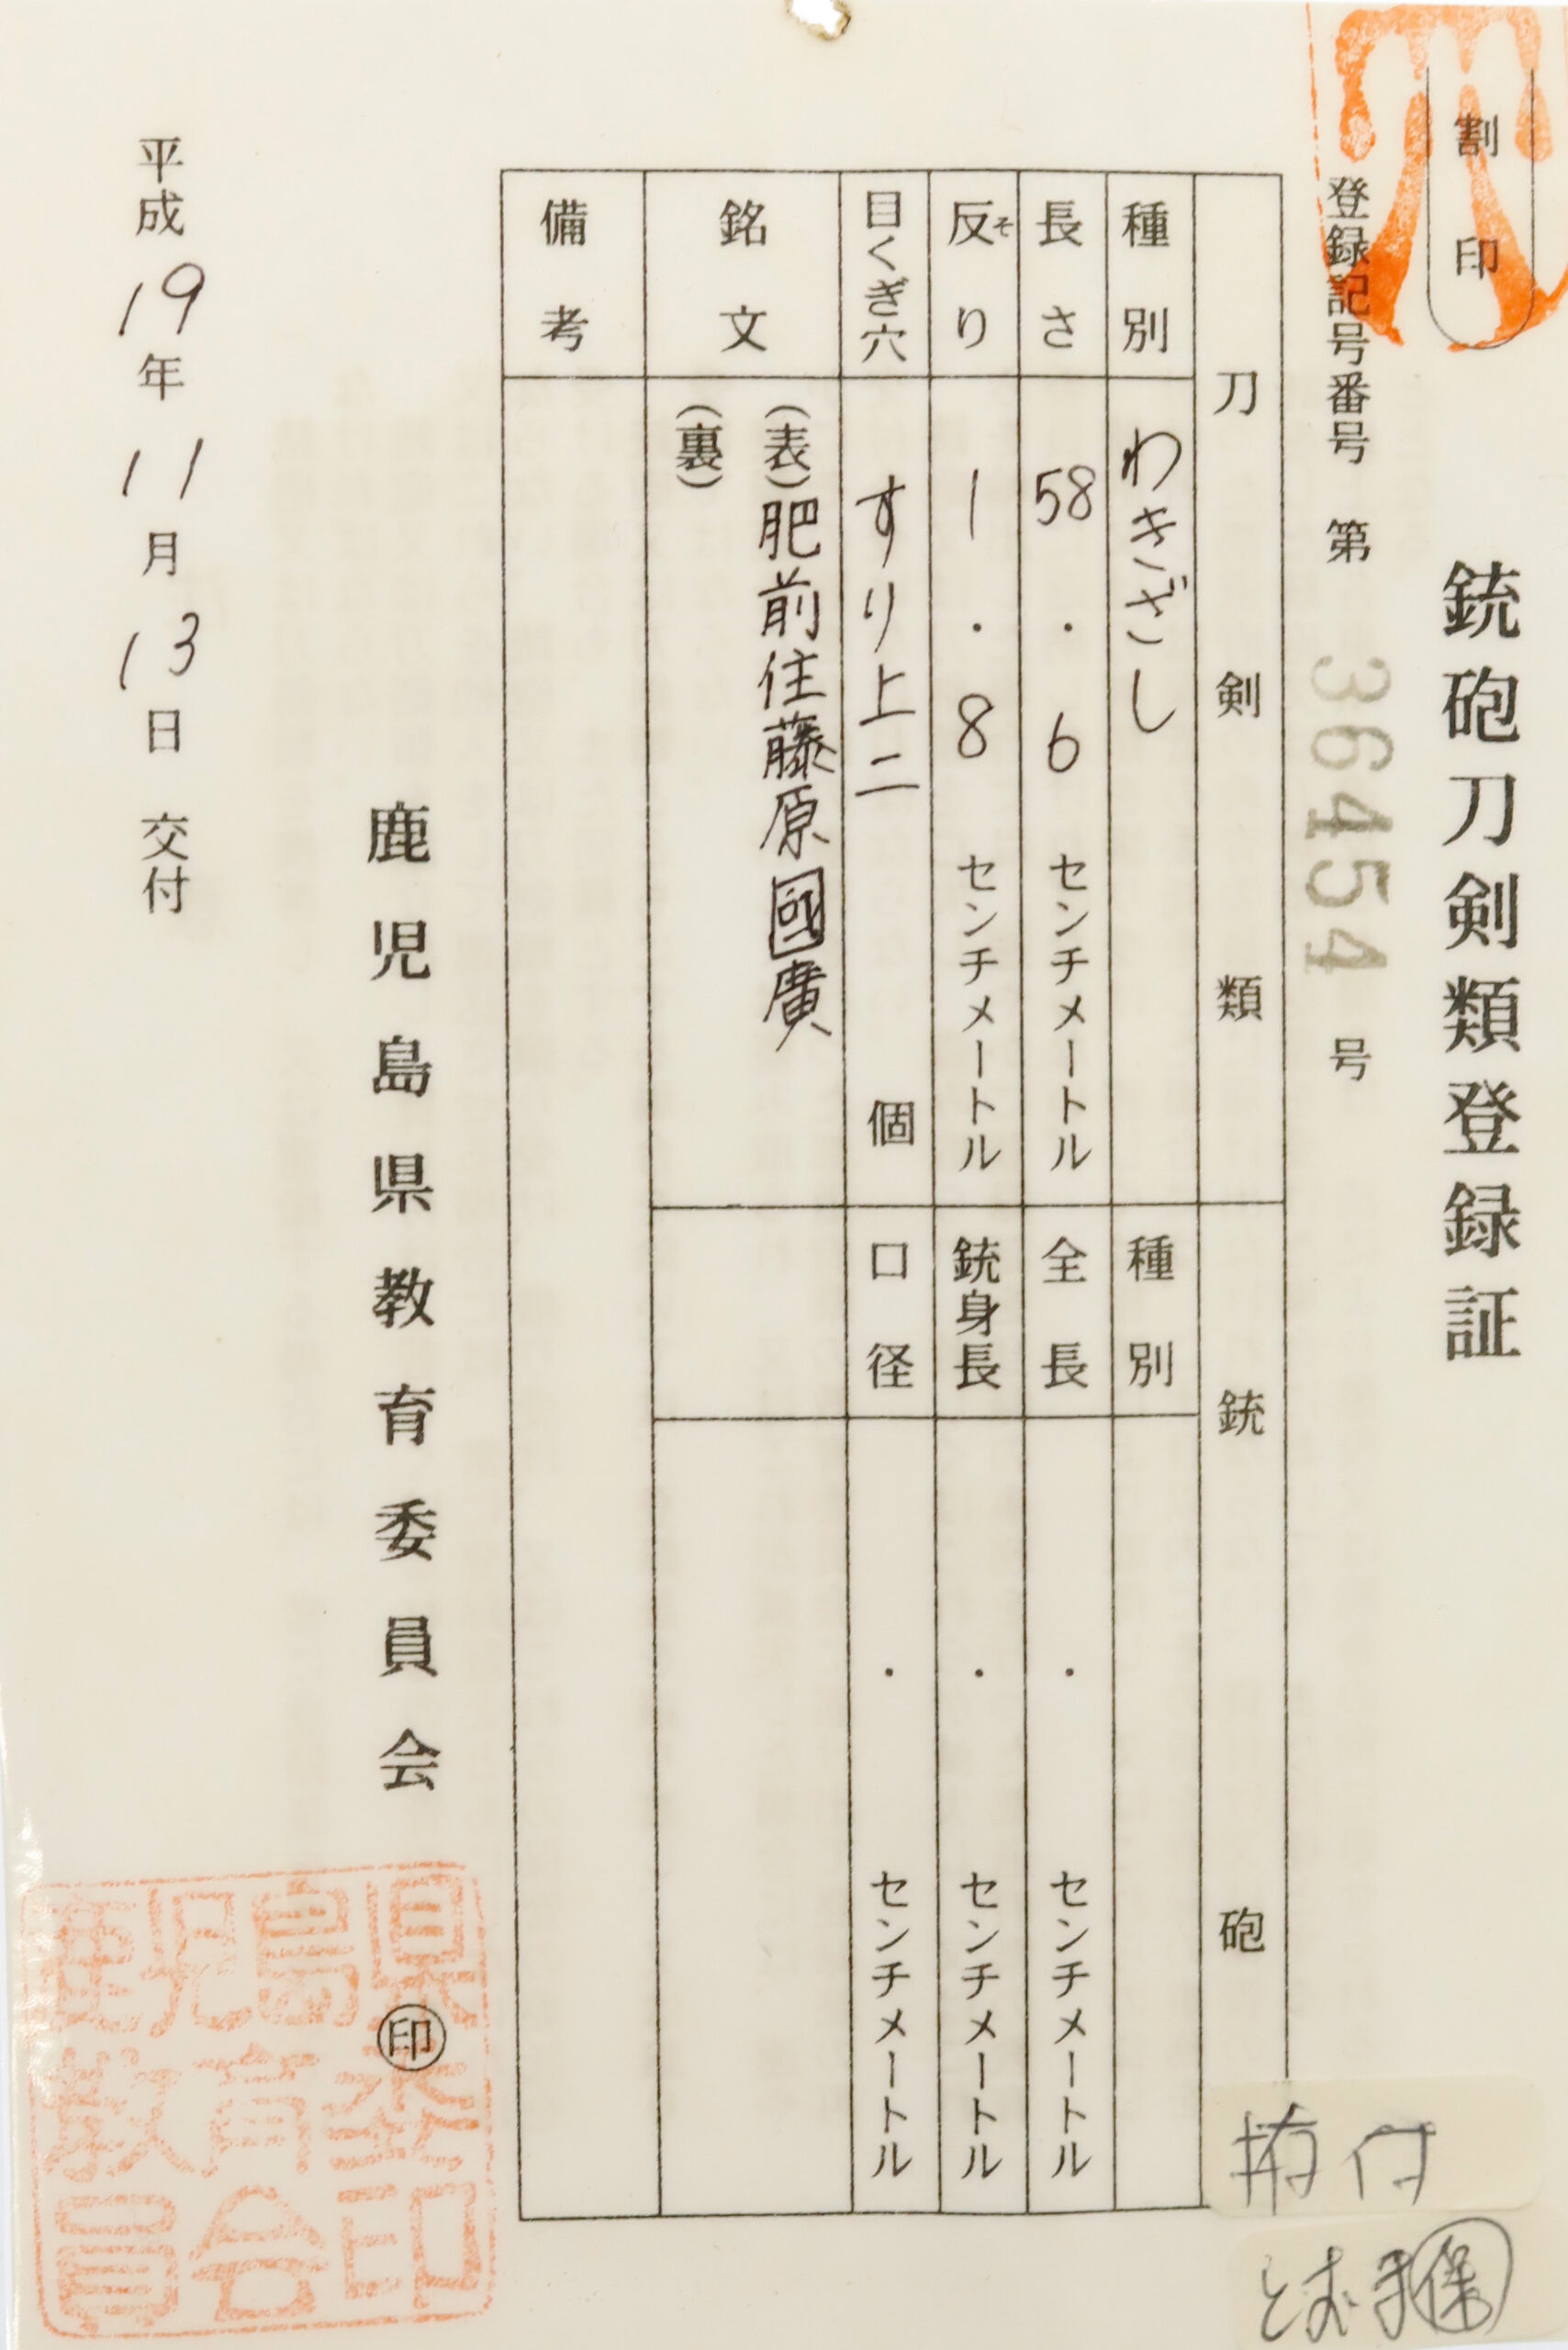 割印
銃砲刀剣類登録証
登録記号番号 第 36454 号
刀剣類
種別 わきざし
長さ 58.6 センチメートル
反り 1.8 センチメートル
そ
目くぎ穴 すり上二 個
銘文 (表)肥前住藤原國廣
(裏)
備考
銃砲
種別
全長 . センチメートル
銃身長 . センチメートル
口径 . センチメートル
鹿児島県教育委員会 印
平成19年11月13日 交付
鹿児島県
教育委
員会印